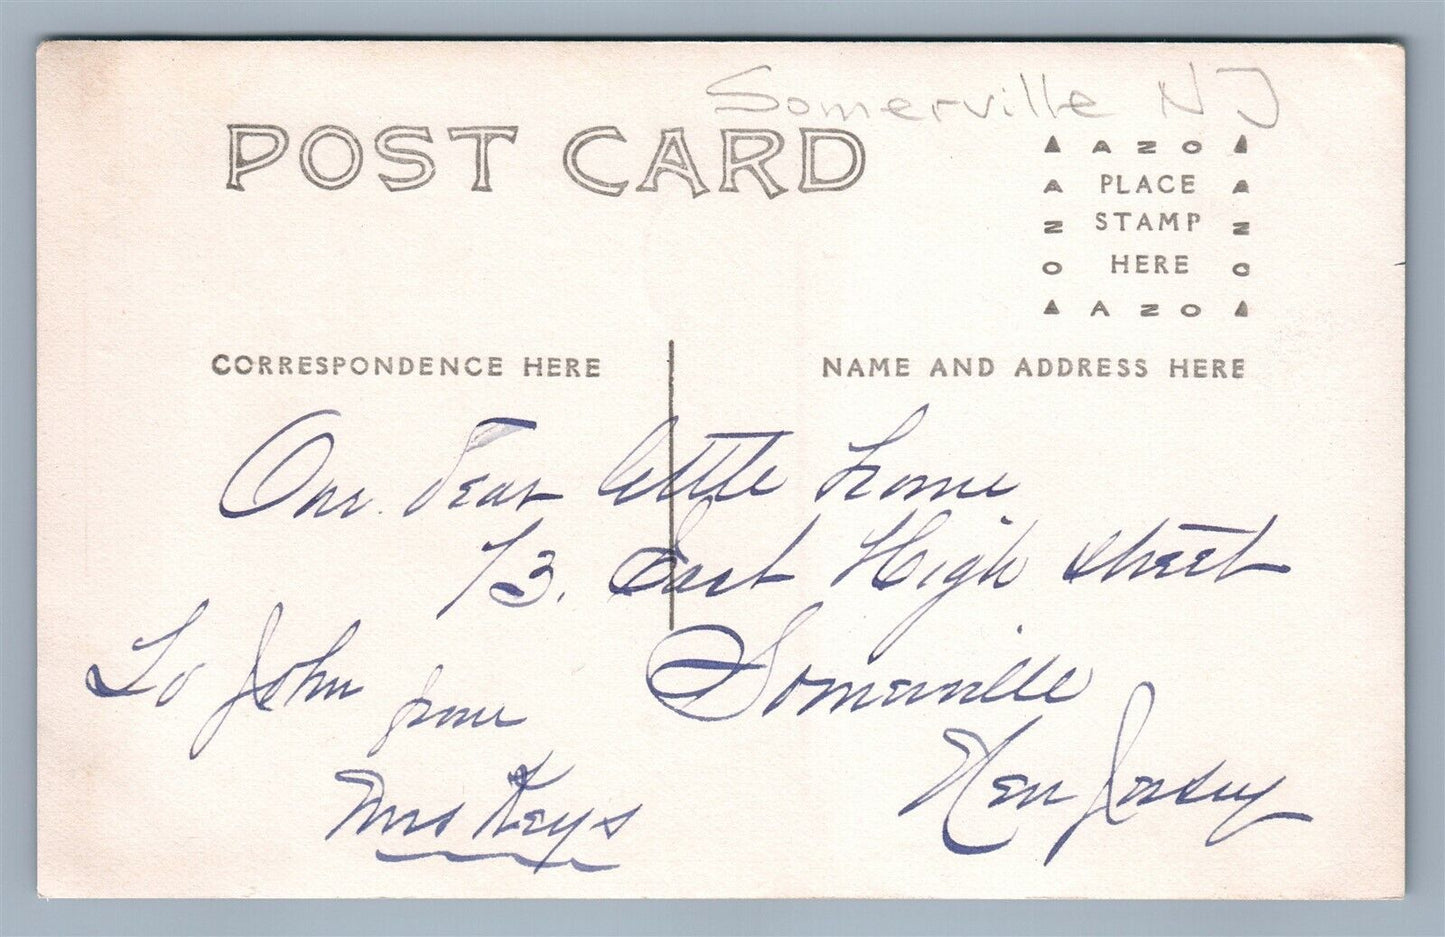 Somerville NJ
POST CARD
AZO
PLACE
STAMP
HERE
AZO
CORRESPONDENCE HERE
NAME AND ADDRESS HERE
Our dear little home
73. East High Street
Somerville
New Jersey
To John
from
Mrs Keys